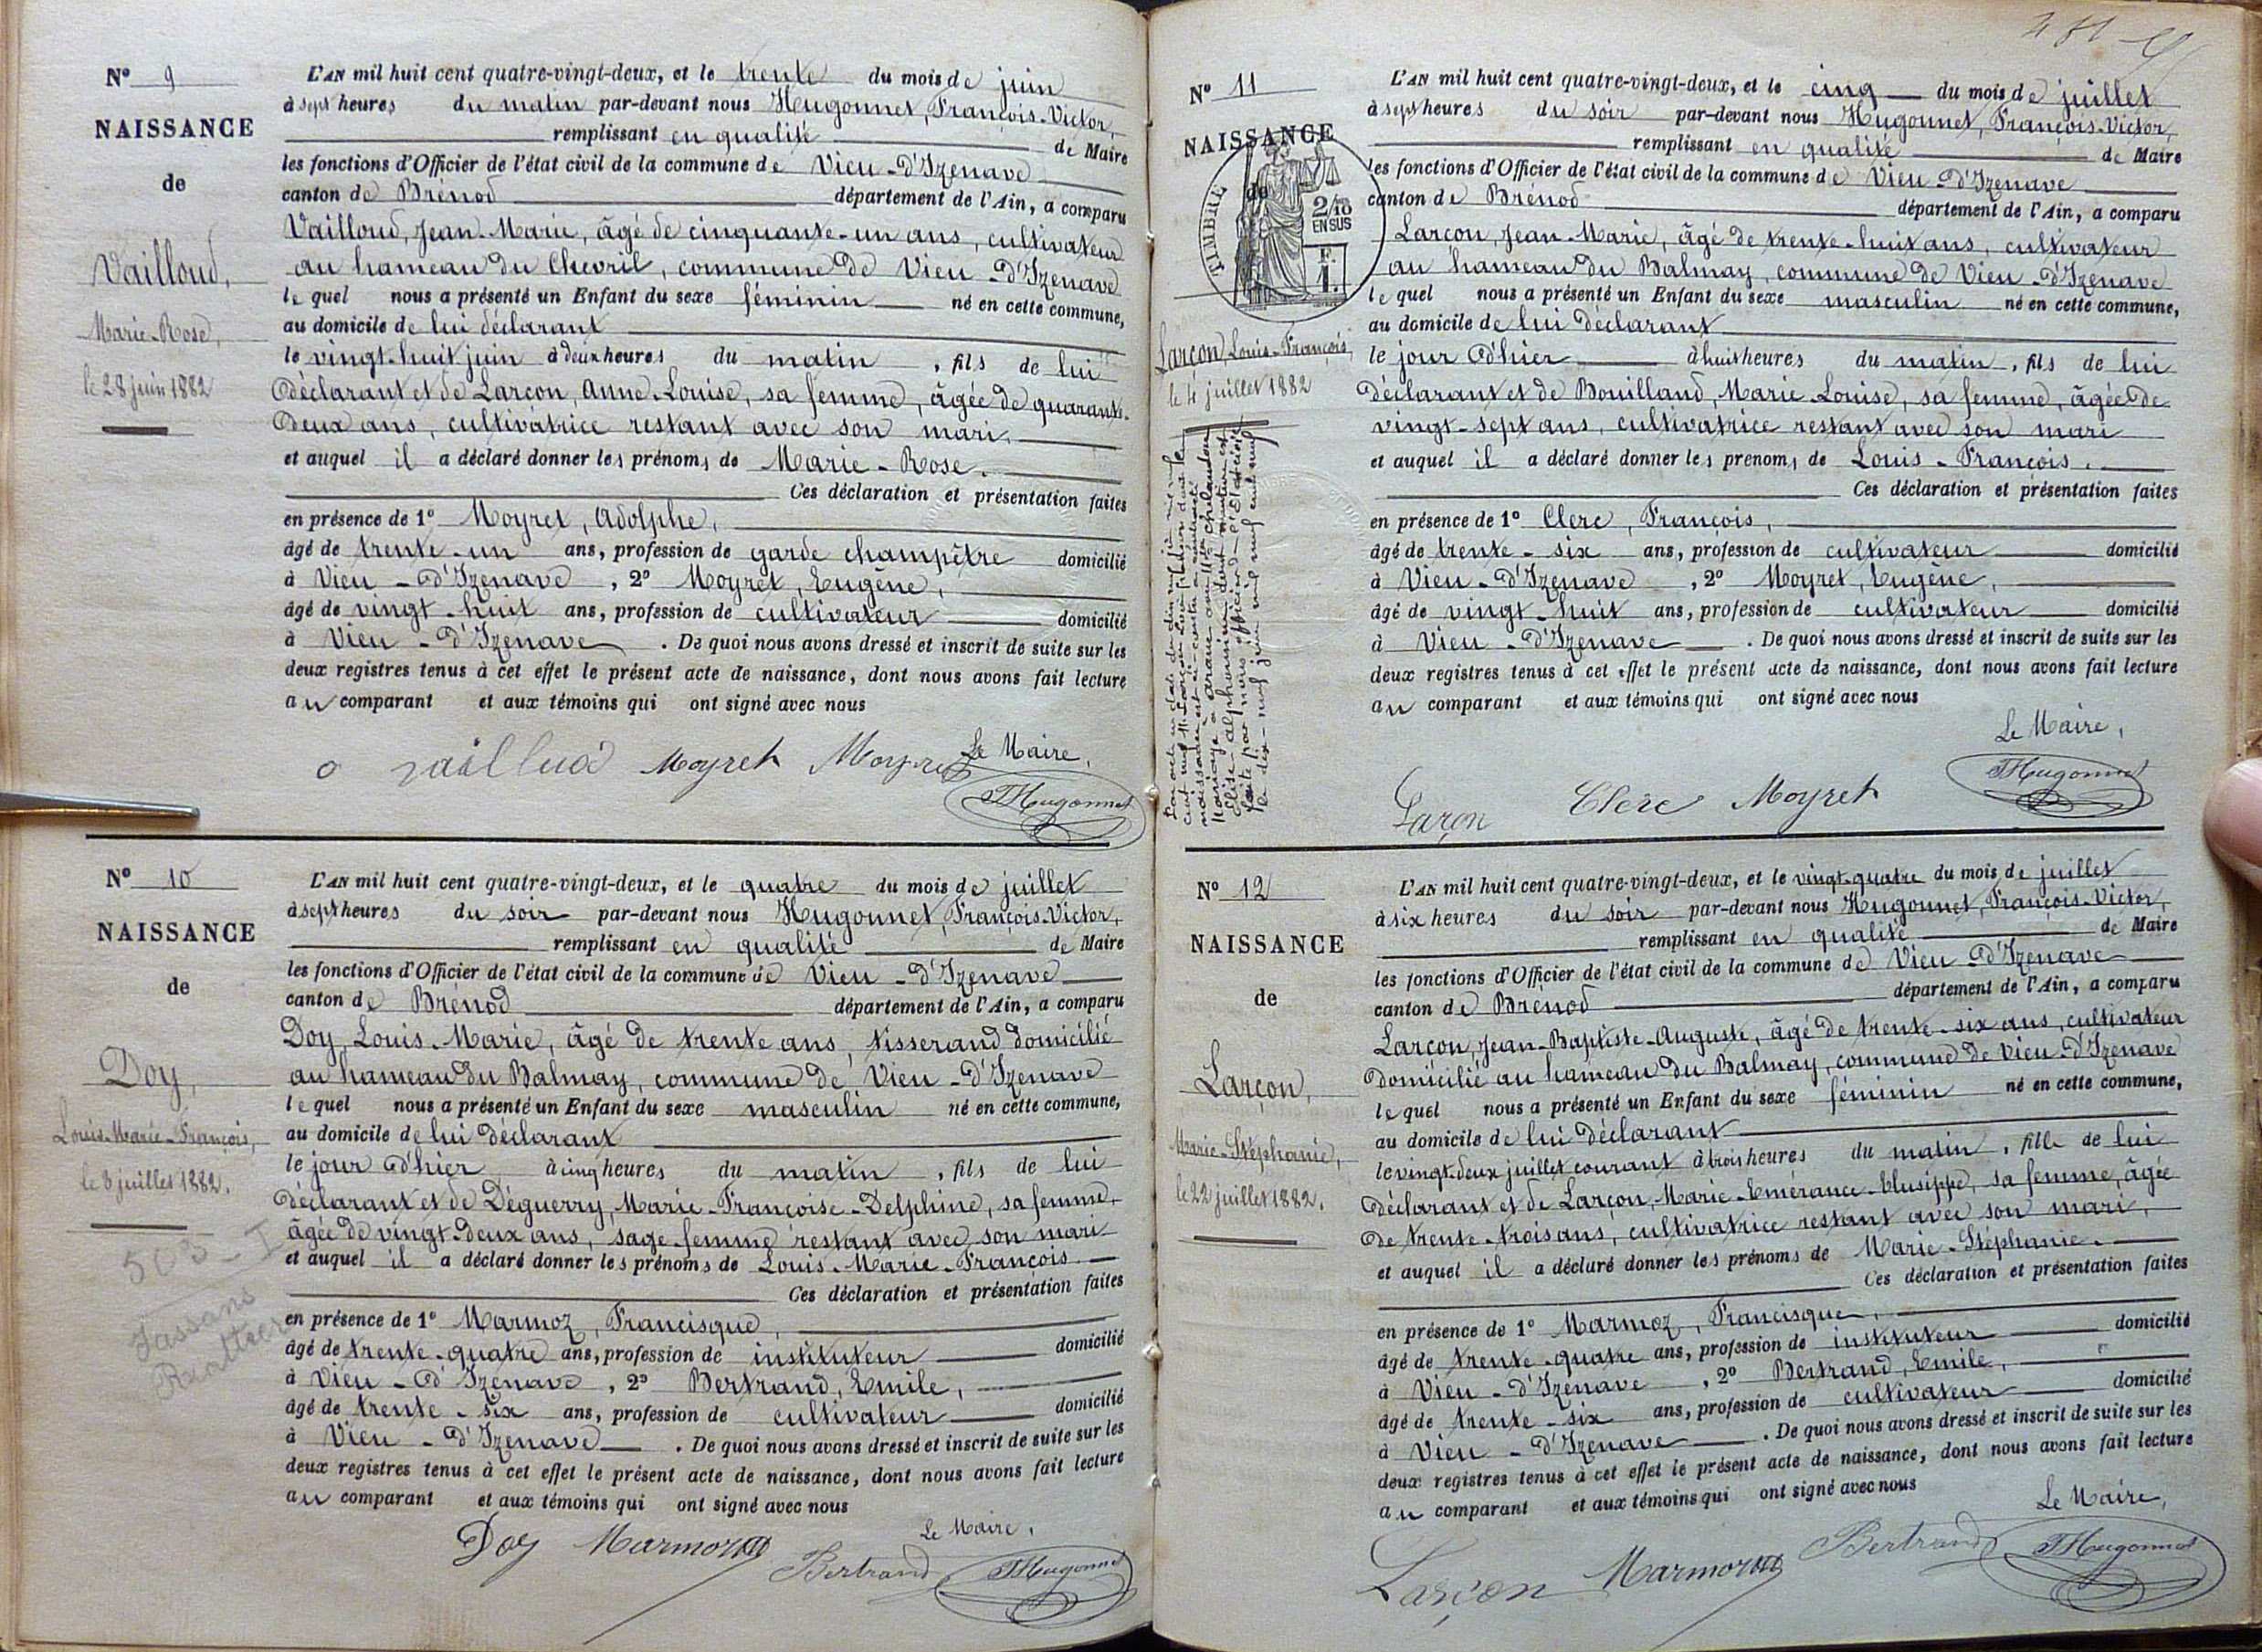 N° 9
NAISSANCE
de
Vailloud,
Marie-Rose,
le 28 juin 1882
L'AN mil huit cent quatre-vingt-deux, et le trente du mois de juin
à sept heures du matin par-devant nous Hugonnet, François-Victor,
remplissant en qualité de Maire
les fonctions d'Officier de l'état civil de la commune de Vieu-d'Izenave
canton de Brénod département de l'Ain, a comparu
Vailloud, Jean-Marie, âgé de cinquante-un ans, cultivateur
au hameau du Chevril, commune de Vieu-d'Izenave
lequel nous a présenté un Enfant du sexe féminin né en cette commune,
au domicile de lui déclarant
le vingt-huit juin à deux heures du matin, fils de lui
déclarant et de Larçon, Anne-Louise, sa femme, âgée de quarante-
deux ans, cultivatrice restant avec son mari,
et auquel il a déclaré donner les prénoms de Marie-Rose.
Ces déclaration et présentation faites
en présence de 1° Moyret, Adolphe,
âgé de trente-un ans, profession de garde champêtre domicilié
à Vieu-d'Izenave, 2° Moyret, Eugène,
âgé de vingt-huit ans, profession de cultivateur domicilié
à Vieu-d'Izenave. De quoi nous avons dressé et inscrit de suite sur les
deux registres tenus à cet effet le présent acte de naissance, dont nous avons fait lecture
au comparant et aux témoins qui ont signé avec nous
Le Maire,
Moyret Moyret
Hugonnet
N° 10
NAISSANCE
de
Doy,
Louis-Marie-François,
le 3 juillet 1882.
L'AN mil huit cent quatre-vingt-deux, et le quatre du mois de juillet
à sept heures du soir par-devant nous Hugonnet, François-Victor,
remplissant en qualité de Maire
les fonctions d'Officier de l'état civil de la commune de Vieu-d'Izenave
canton de Brénod département de l'Ain, a comparu
Doy, Louis-Marie, âgé de trente ans, tisserand domicilié
au hameau du Balmay, commune de Vieu-d'Izenave
lequel nous a présenté un Enfant du sexe masculin né en cette commune,
au domicile de lui déclarant
le jour d'hier à cinq heures du matin, fils de lui
déclarant et de Déguerry, Marie-Françoise-Delphine, sa femme,
âgée de vingt-deux ans, sage-femme restant avec son mari
et auquel il a déclaré donner les prénoms de Louis-Marie-François.
Ces déclaration et présentation faites
en présence de 1° Marmoz, Francisque,
âgé de trente-quatre ans, profession de instituteur domicilié
à Vieu-d'Izenave, 2° Bertrand, Emile,
âgé de trente-six ans, profession de cultivateur domicilié
à Vieu-d'Izenave. De quoi nous avons dressé et inscrit de suite sur les
deux registres tenus à cet effet le présent acte de naissance, dont nous avons fait lecture
au comparant et aux témoins qui ont signé avec nous
Le Maire,
Doy Marmoz Bertrand Hugonnet
N° 11
NAISSANCE
de
TIMBRE
2/10
EN SUS
F.
1.
Larçon, Louis-François,
le 4 juillet 1882
L'AN mil huit cent quatre-vingt-deux, et le cinq du mois de juillet
à sept heures du soir par-devant nous Hugonnet, François-Victor,
remplissant en qualité de Maire
les fonctions d'Officier de l'état civil de la commune de Vieu-d'Izenave
canton de Brénod département de l'Ain, a comparu
Larçon, Jean-Marie, âgé de trente-huit ans, cultivateur
au hameau du Balmay, commune de Vieu-d'Izenave
lequel nous a présenté un Enfant du sexe masculin né en cette commune,
au domicile de lui déclarant
le jour d'hier à huit heures du matin, fils de lui
déclarant et de Bouilland, Marie-Louise, sa femme, âgée de
vingt-sept ans, cultivatrice restant avec son mari
et auquel il a déclaré donner les prenoms de Louis-François.
Ces déclaration et présentation faites
en présence de 1° Clerc, François,
âgé de trente-six ans, profession de cultivateur domicilié
à Vieu-d'Izenave, 2° Moyret, Eugène,
âgé de vingt-huit ans, profession de cultivateur domicilié
à Vieu-d'Izenave. De quoi nous avons dressé et inscrit de suite sur les
deux registres tenus à cet effet le présent acte de naissance, dont nous avons fait lecture
au comparant et aux témoins qui ont signé avec nous
Le Maire,
Larçon Clerc Moyret Hugonnet
N° 12
NAISSANCE
de
Larçon,
Marie-Stéphanie,
le 22 juillet 1882.
L'AN mil huit cent quatre-vingt-deux, et le vingt-quatre du mois de juillet
à six heures du soir par-devant nous Hugonnet, François-Victor,
remplissant en qualité de Maire
les fonctions d'Officier de l'état civil de la commune de Vieu-d'Izenave
canton de Brénod département de l'Ain, a comparu
Larçon, Jean-Baptiste-Auguste, âgé de trente-six ans, cultivateur
domicilié au hameau du Balmay, commune de Vieu-d'Izenave
lequel nous a présenté un Enfant du sexe féminin né en cette commune,
au domicile de lui déclarant
le vingt-deux juillet courant à trois heures du matin, fille de lui
déclarant et de Larçon, Marie-Emérance-Elusippe, sa femme, âgée
de trente-trois ans, cultivatrice restant avec son mari,
et auquel il a déclaré donner les prénoms de Marie-Stéphanie.
Ces déclaration et présentation faites
en présence de 1° Marmoz, Francisque,
âgé de trente-quatre ans, profession de instituteur domicilié
à Vieu-d'Izenave, 2° Bertrand, Emile,
âgé de trente-six ans, profession de cultivateur domicilié
à Vieu-d'Izenave. De quoi nous avons dressé et inscrit de suite sur les
deux registres tenus à cet effet le présent acte de naissance, dont nous avons fait lecture
au comparant et aux témoins qui ont signé avec nous
Le Maire,
Larçon Marmoz Bertrand Hugonnet